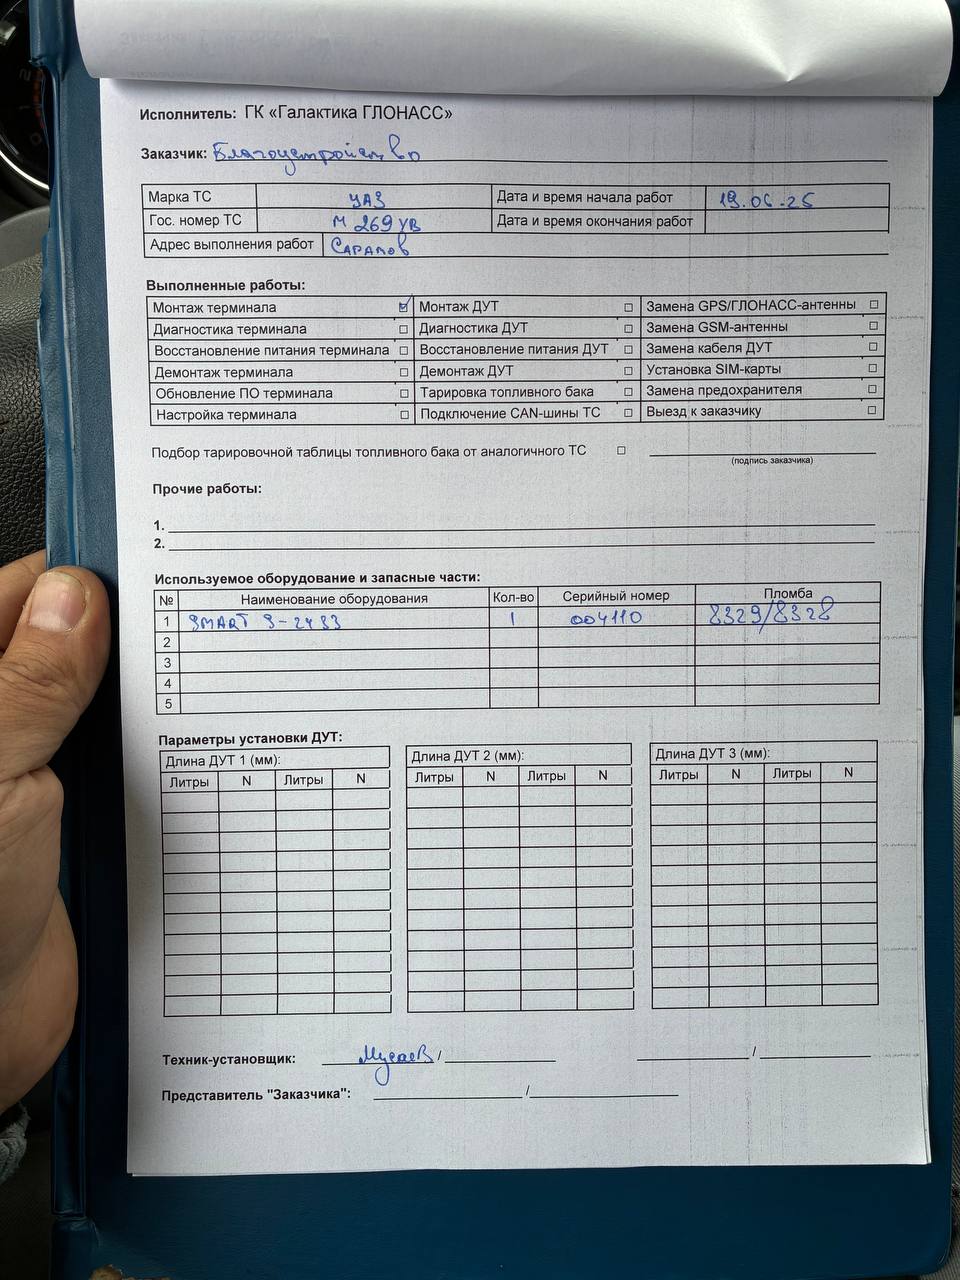 Исполнитель: ГК «Галактика ГЛОНАСС»
Заказчик: Благоустройство
Марка ТС УАЗ Дата и время начала работ 19.06.25
Гос. номер ТС М 269 УВ Дата и время окончания работ
Адрес выполнения работ Саратов
Выполненные работы:
Монтаж терминала ☑ Монтаж ДУТ ☐ Замена GPS/ГЛОНАСС-антенны ☐
Диагностика терминала ☐ Диагностика ДУТ ☐ Замена GSM-антенны ☐
Восстановление питания терминала ☐ Восстановление питания ДУТ ☐ Замена кабеля ДУТ ☐
Демонтаж терминала ☐ Демонтаж ДУТ ☐ Установка SIM-карты ☐
Обновление ПО терминала ☐ Тарировка топливного бака ☐ Замена предохранителя ☐
Настройка терминала ☐ Подключение CAN-шины ТС ☐ Выезд к заказчику ☐
Подбор тарировочной таблицы топливного бака от аналогичного ТС ☐
(подпись заказчика)
Прочие работы:
1.
2.
Используемое оборудование и запасные части:
№ Наименование оборудования Кол-во Серийный номер Пломба
1 SMART S-2433 1 004110 8329/8328
2
3
4
5
Параметры установки ДУТ:
Длина ДУТ 1 (мм): Длина ДУТ 2 (мм): Длина ДУТ 3 (мм):
Литры N Литры N Литры N Литры N Литры N Литры N
Техник-установщик: Мусаев / /
Представитель "Заказчика": /